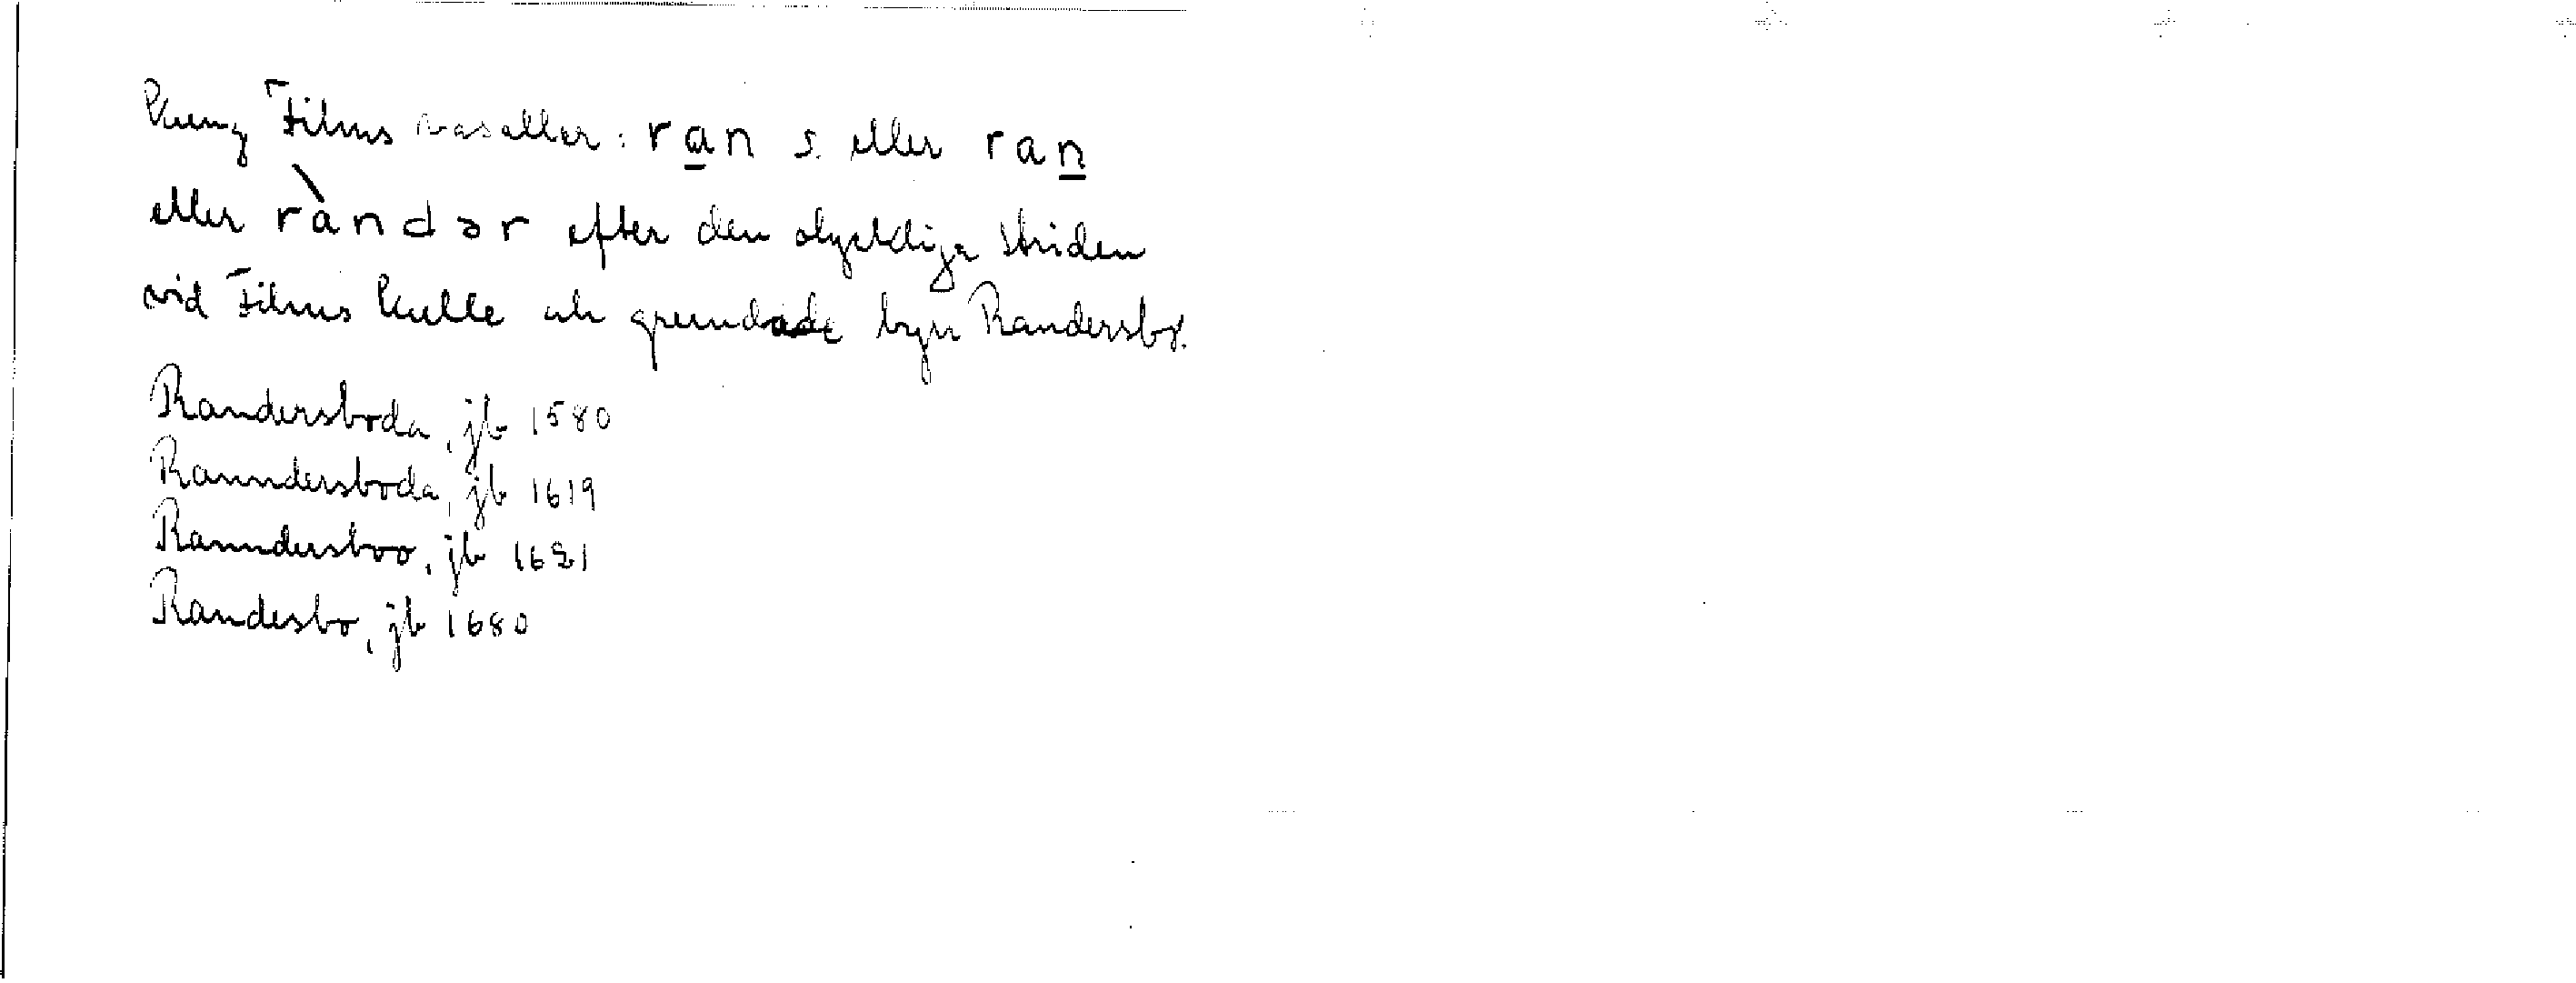 Kung Films vasaller: ran s. eller ran
eller ràndər efter den olyckliga striden
vid Films kulle och grundade byn Randersbo.
Randersboda, jb 1580
Ranndersboda, jb 1619
Ranndersboo, jb 1621
Randesbo, jb 1680